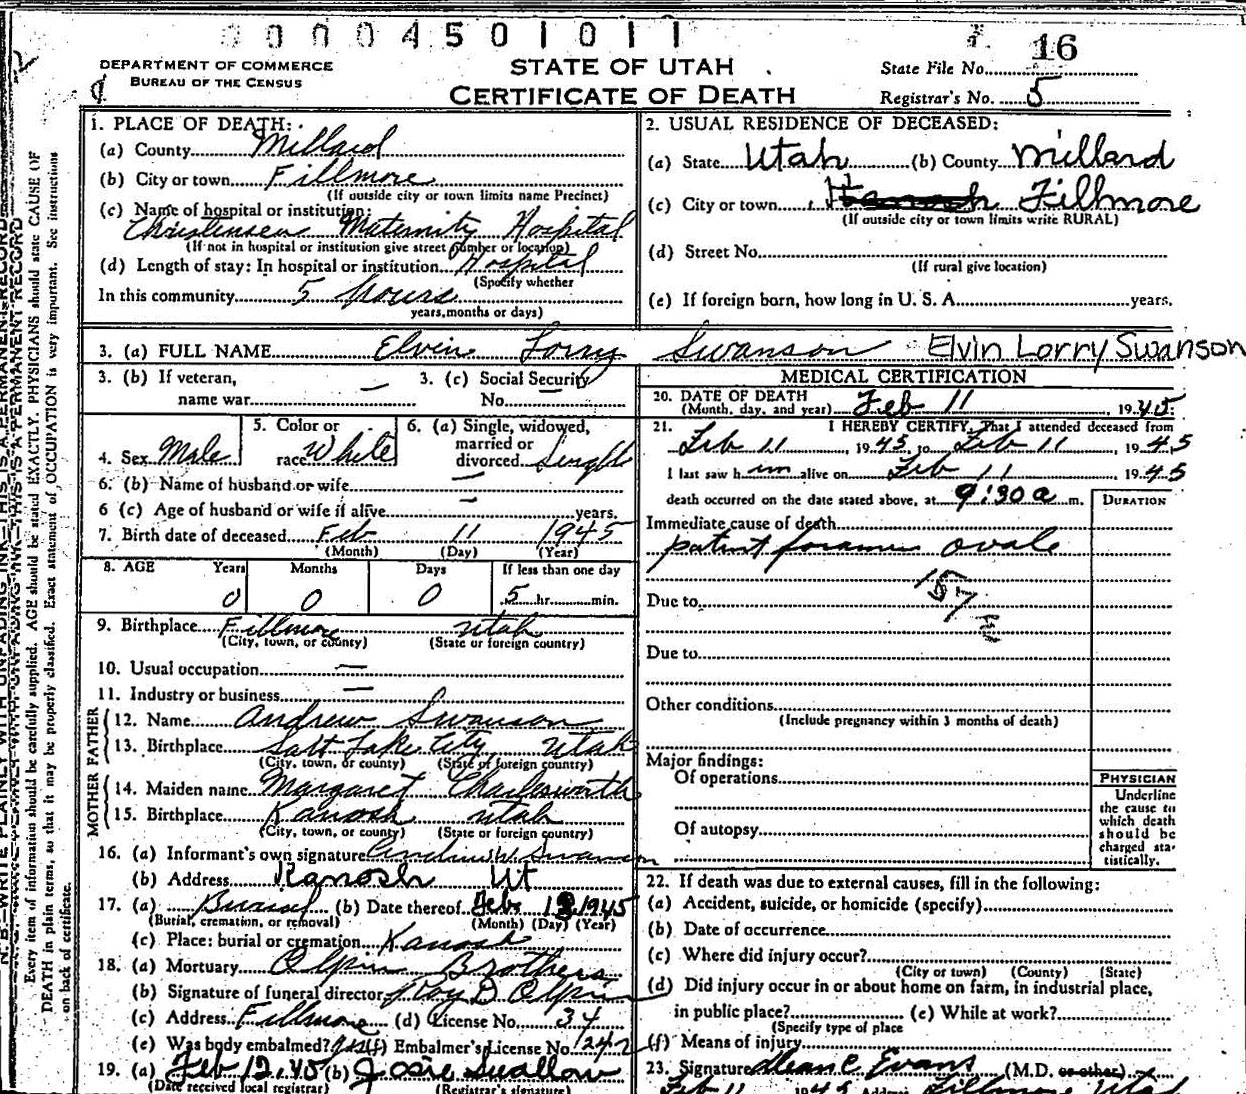 0 0 0 0 4 5 0 1 0 1 1
DEPARTMENT OF COMMERCE
BUREAU OF THE CENSUS
STATE OF UTAH
CERTIFICATE OF DEATH
State File No. 16
Registrar's No. 5
N. B.—WRITE PLAINLY WITH UNFADING INK—THIS IS A PERMANENT RECORD
Every item of information should be carefully supplied. AGE should be stated EXACTLY. PHYSICIANS should state CAUSE OF
DEATH in plain terms, so that it may be properly classified. Exact statement of OCCUPATION is very important. See instructions
on back of certificate.
1. PLACE OF DEATH:
(a) County Millard
(b) City or town Fillmore
(If outside city or town limits name Precinct)
(c) Name of hospital or institution:
Christensen Maternity Hospital
(If not in hospital or institution give street number or location)
(d) Length of stay: In hospital or institution Hospital
(Specify whether
In this community 5 hours
years, months or days)
2. USUAL RESIDENCE OF DECEASED:
(a) State Utah (b) County Millard
(c) City or town Kanosh Fillmore
(If outside city or town limits write RURAL)
(d) Street No.
(If rural give location)
(e) If foreign born, how long in U. S. A. years.
3. (a) FULL NAME Elvin Lorry Swanson Elvin Lorry Swanson
3. (b) If veteran, 3. (c) Social Security
name war — No. —
4. Sex Male
5. Color or
race White
6. (a) Single, widowed,
married or
divorced Single
6. (b) Name of husband or wife —
6 (c) Age of husband or wife if alive — years.
7. Birth date of deceased Feb 11 1945
(Month) (Day) (Year)
8. AGE Years Months Days If less than one day
0 0 0 5 hr. min.
9. Birthplace Fillmore Utah
(City, town, or county) (State or foreign country)
10. Usual occupation —
11. Industry or business —
FATHER
12. Name Andrew Swanson
13. Birthplace Salt Lake City, Utah
(City, town, or county) (State of foreign country)
MOTHER
14. Maiden name Margaret Charlesworth
15. Birthplace Kanosh Utah
(City, town, or county) (State or foreign country)
16. (a) Informant's own signature Andrew W. Swanson
(b) Address Kanosh Ut
17. (a) Burial (b) Date thereof Feb. 12 1945
(Burial, cremation, or removal) (Month) (Day) (Year)
(c) Place: burial or cremation Kanosh
18. (a) Mortuary Olpin Brothers
(b) Signature of funeral director Roy D Olpin
(c) Address Fillmore (d) License No. 34
(e) Was body embalmed? (f) Embalmer's License No. 242
19. (a) Feb 12. 45 (b) Josie Swallow
(Date received local registrar) (Registrar's signature)
MEDICAL CERTIFICATION
20. DATE OF DEATH
(Month, day, and year) Feb 11, 1945
21. I HEREBY CERTIFY, That I attended deceased from
Feb 11, 1945, to Feb 11, 1945
I last saw him alive on Feb 11 1945
death occurred on the date stated above, at 9:30 a m.
DURATION
Immediate cause of death
patent foramen ovale
157
Due to
Due to
Other conditions
(Include pregnancy within 3 months of death)
Major findings:
Of operations
Of autopsy
PHYSICIAN
Underline
the cause to
which death
should be
charged sta-
tistically.
22. If death was due to external causes, fill in the following:
(a) Accident, suicide, or homicide (specify)
(b) Date of occurrence
(c) Where did injury occur?
(City or town) (County) (State)
(d) Did injury occur in or about home on farm, in industrial place,
in public place? (e) While at work?
(Specify type of place
(f) Means of injury
23. Signature Dean C Evans (M.D. or other)
Feb 11 1945 Address Fillmore Utah